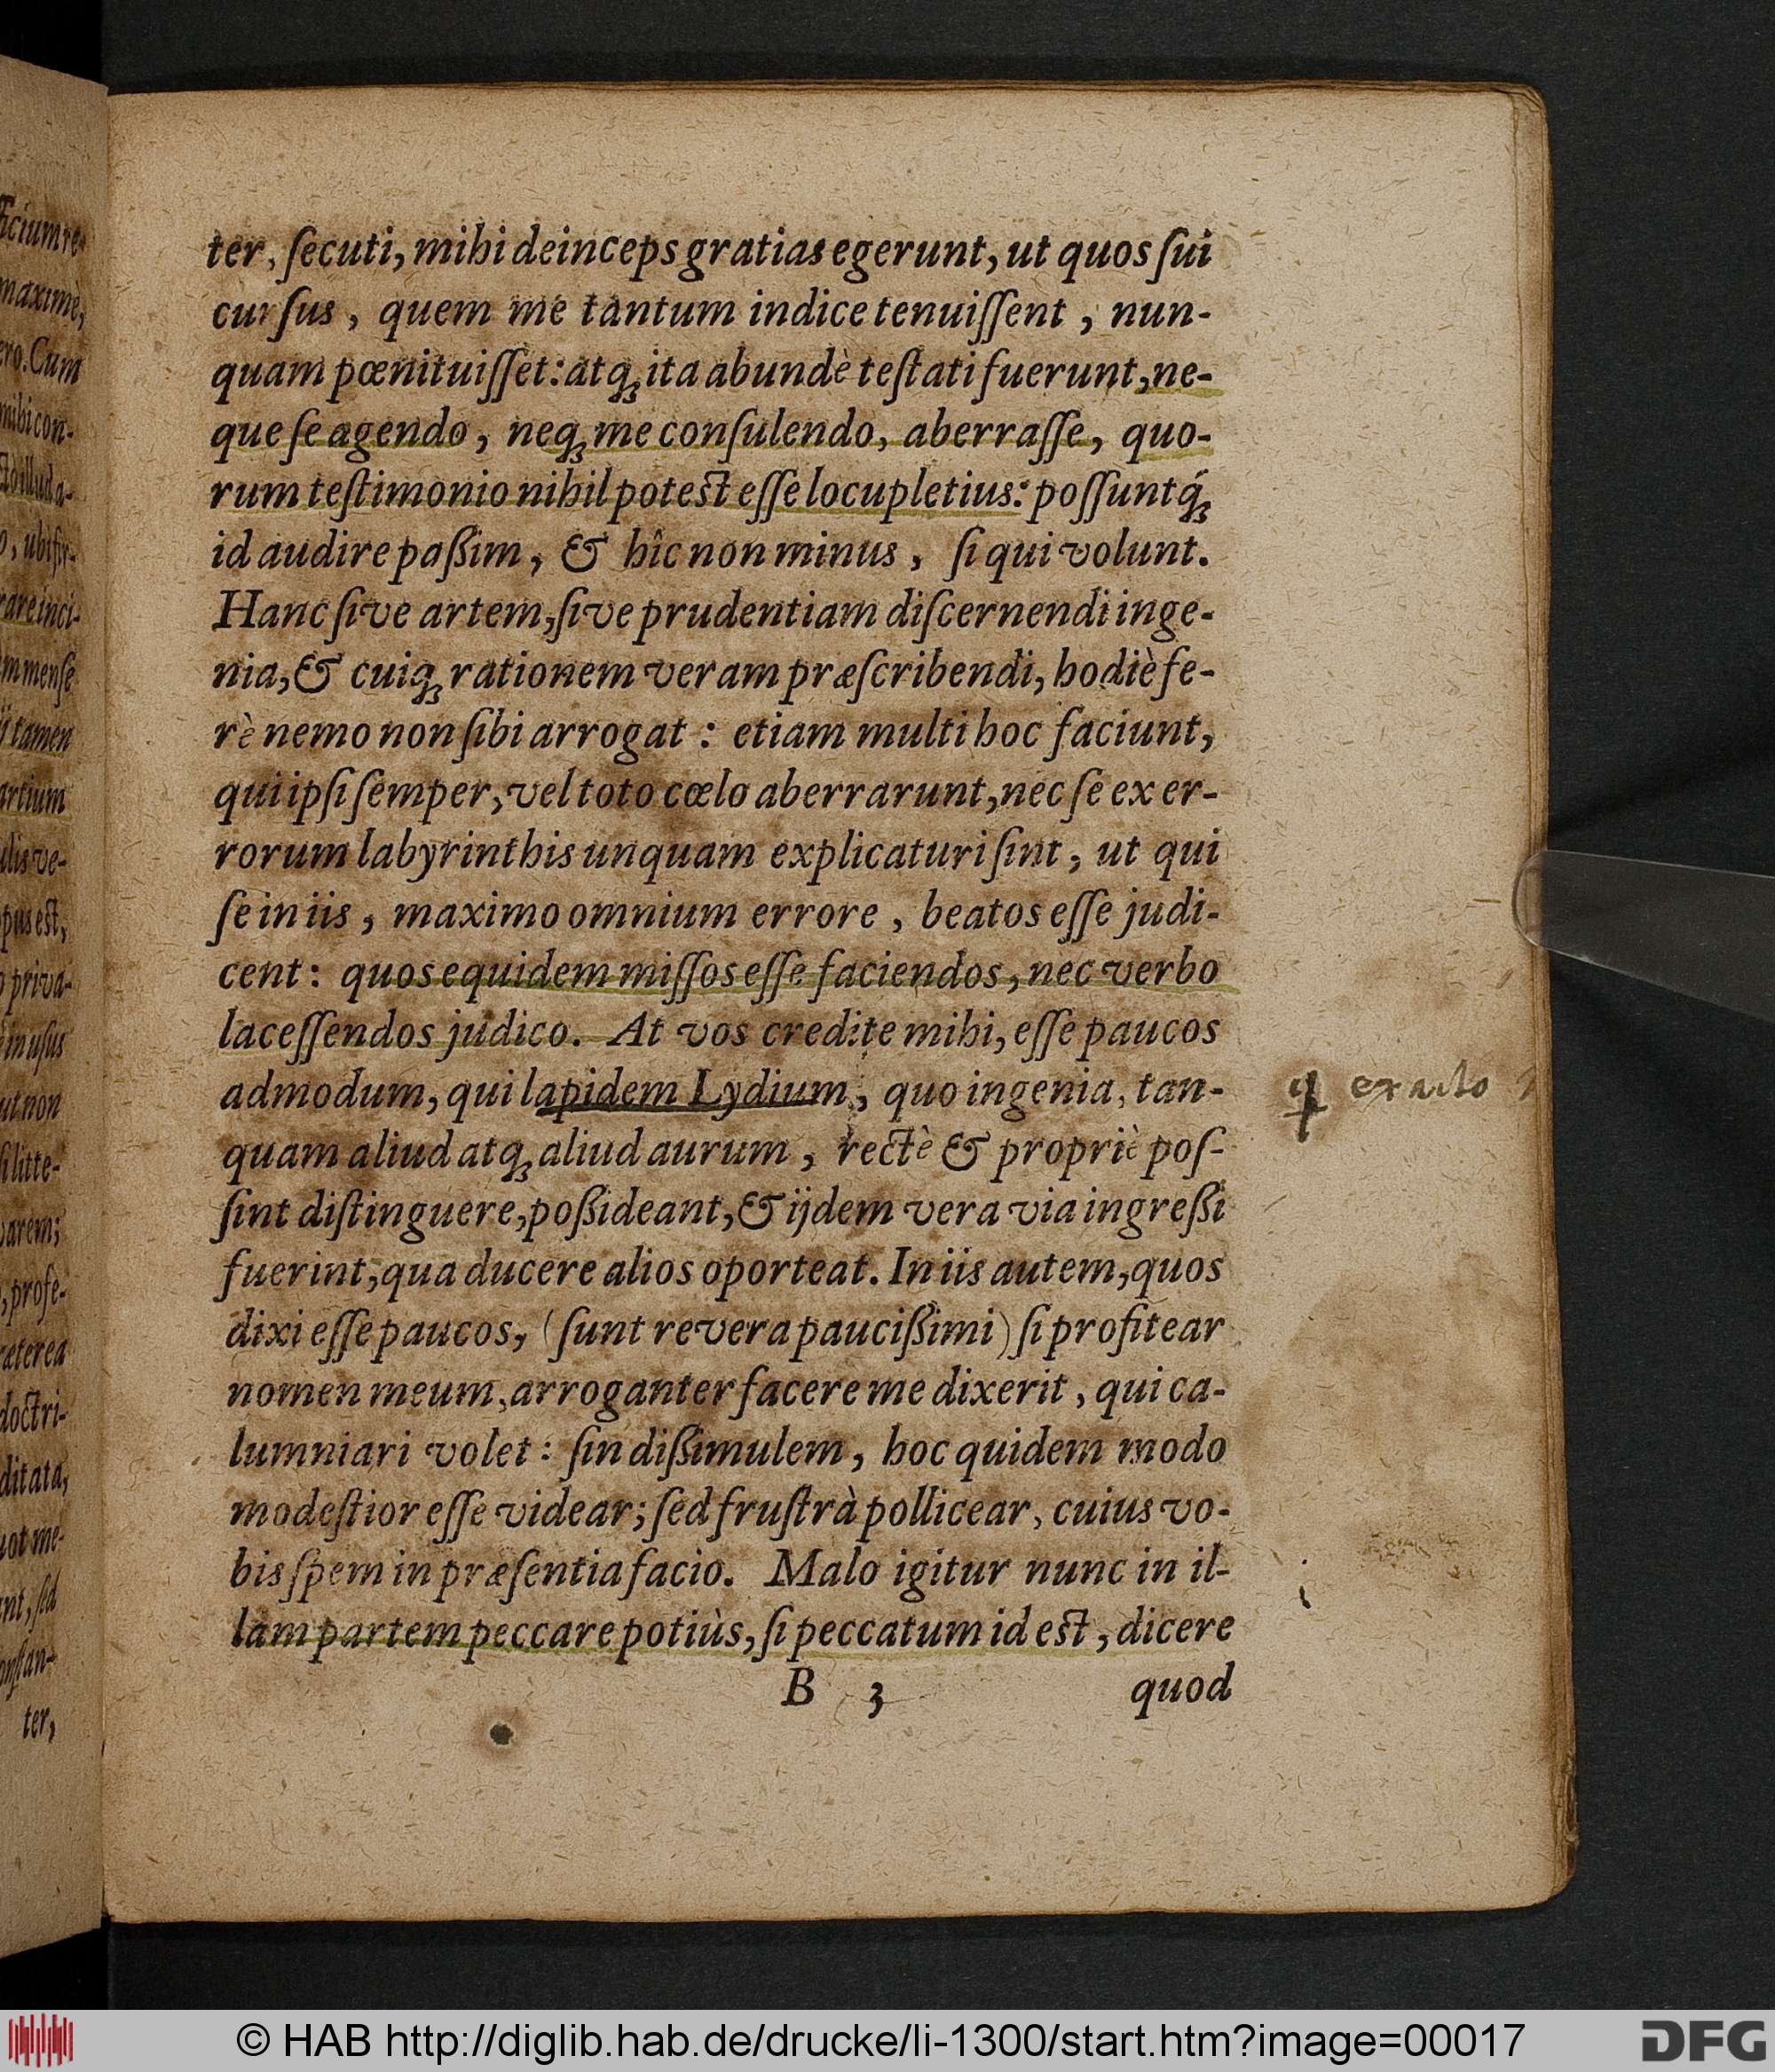 ter, ſecuti, mihi deinceps gratias egerunt, ut quos ſui
curſus, quem me tantum indice tenuiſſent, nun-
quam pœnituiſſet: atq; ita abundè teſtati fuerunt, ne-
que ſe agendo, neq; me conſulendo, aberraſſe, quo-
rum teſtimonio nihil potest eſſe locupletius: poſſuntq́;
id audire paßim, & hîc non minus, ſi qui volunt.
Hanc ſive artem, ſive prudentiam diſcernendi inge-
nia, & cuiq; rationem veram præſcribendi, hodiè fe-
rè nemo non ſibi arrogat: etiam multi hoc faciunt,
qui ipſi ſemper, vel toto cœlo aberrarunt, nec ſe ex er-
rorum labyrinthis unquam explicaturi ſint, ut qui
ſe in iis, maximo omnium errore, beatos eſſe judi-
cent: quos equidem miſſos eſſe faciendos, nec verbo
laceſſendos judico. At vos credite mihi, eſſe paucos
admodum, qui lapidem Lydium, quo ingenia, tan-
quam aliud atq; aliud aurum, rectè & propriè poſ-
ſint diſtinguere, poßideant, & ijdem vera via ingreßi
fuerint, qua ducere alios oporteat. In iis autem, quos
dixi eſſe paucos, (ſunt revera paucißimi) ſi profitear
nomen meum, arroganter facere me dixerit, qui ca-
lumniari volet: ſin dißimulem, hoc quidem modo
modeſtior eſſe videar; ſed fruſtrà pollicear, cuius vo-
bis ſpem in præſentia facio. Malo igitur nunc in il-
lam partem peccare potiùs, ſi peccatum id est, dicere
B 3 quod
ficium re-
maximè,
ero. Cum
mihi con-
illud a-
ij tamen
artium
pus est,
priva-
in uſus
ut non
litte-
parem;
, profe-
doctri-
ditata,
ter,
© HAB http://diglib.hab.de/drucke/li-1300/start.htm?image=00017
DFG